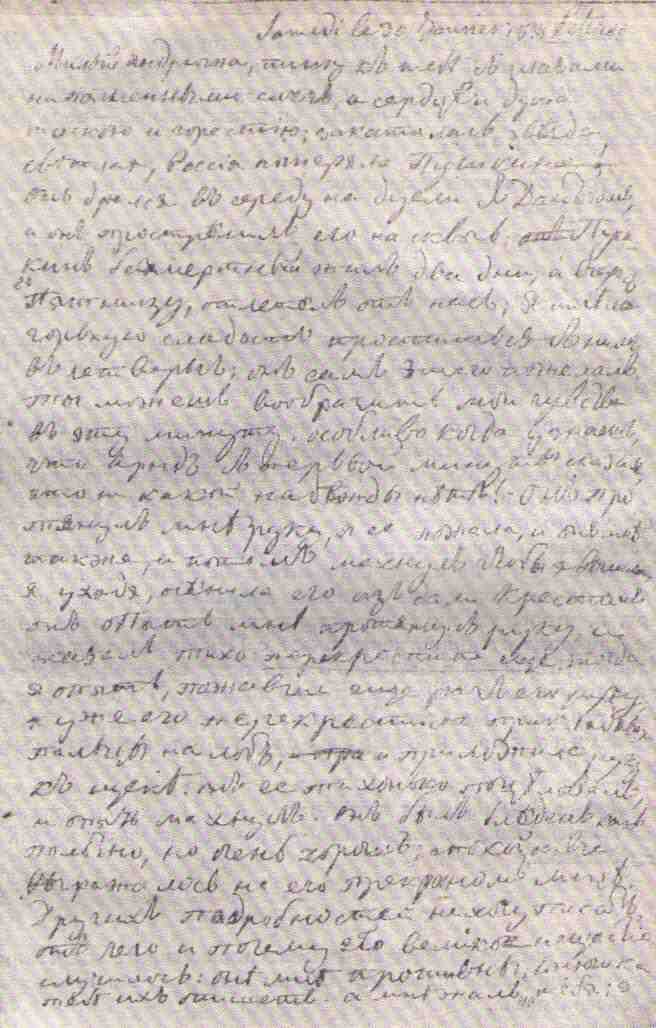 Samedi le 30 Janvier 1837
Милый Андрюша, пишу къ тебѣ съ глазами
наполненными слезъ, а сердце и душа
тоскою и горестію; закатилась звѣзда
свѣтлая, Россія потеряла Пушкина!
онъ дрался въ середу на дуели съ Дантезомъ,
и онъ прострѣлилъ его на сквозь;
безмертный жилъ два дни, а вчера
въ Пятницу, отлетѣлъ отъ насъ; я имѣла
горькую сладость проститься съ нимъ
въ Четвергъ; онъ самъ этого пожелалъ
ты можешь вообразить мои чувства
въ эту минуту, особливо когда узнаешь,
что Арндъ съ первой минуты сказалъ,
что никакой надежды нѣтъ! Онъ про-
тянулъ мнѣ руку, я её пожала, и онъ мнѣ
также, и потомъ махнулъ чтобы я вышла
я уходя, осѣнила его издали крестомъ
онъ опять мнѣ протянулъ руку и
сказалъ тихо перекрестите еще, тогда
я опять, пожавши еще разъ его руку,
я уже его перекрестила прикладывая
пальцы на лобъ, и приложила руку
къ щекѣ: онъ ее тихонько поцѣловалъ,
и опять махнулъ. онъ былъ блѣденъ какъ
полотно, но очень хорошъ; спокойствіе
выражалось на его прекрасномъ лицѣ.
Другихъ подробностей не хочу писать,
отъ чего и почему это великое нещастіе
случилось: онѣ мнѣ противны;
тебѣ ихъ опишетъ. а мнѣ жаль